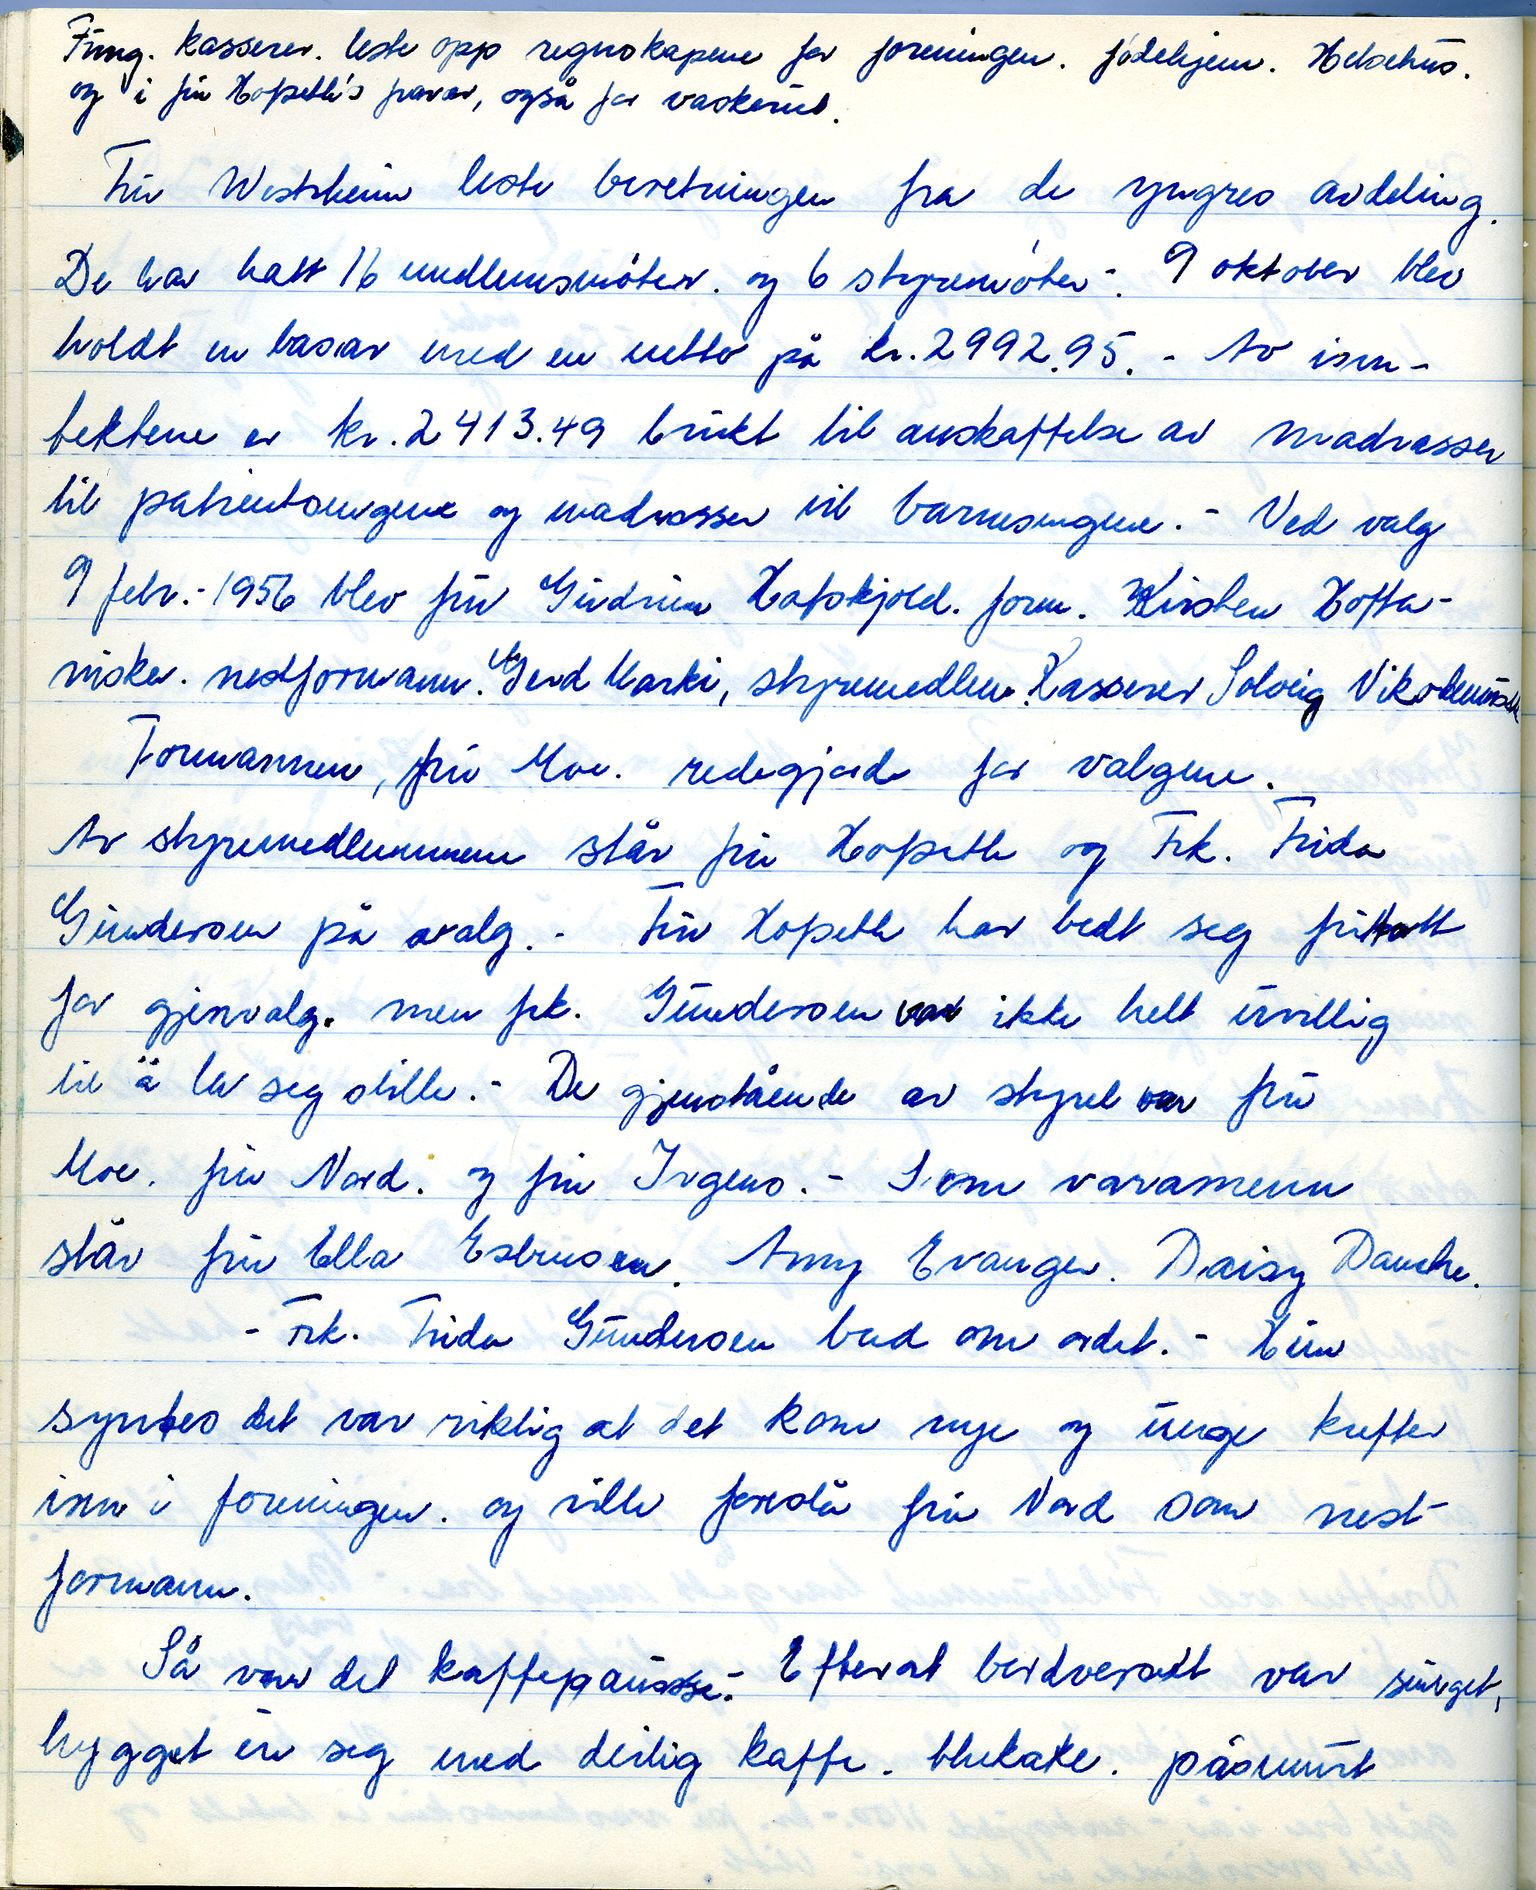 Fung. kasserer. leste opp regnskapene for foreningen. fødehjem. Helsehus.
og i fru Hopseth's fravær, også for vaskeriet.
Fru Westrheim leste beretningen fra de yngres avdeling.
De har hatt 16 medlemsmøter. og 6 styremøter -. 9 oktober blev
holdt en basar med en netto på kr. 2992.95. - Av inn-
tektene er kr. 2413.49 brukt til anskaffelse av madrasser
til patientsengene og madrasser til barnesengene. - Ved valg
9 febr. - 1956 blev fru Gudrun Hafskjold. form. Kirsten Hofta-
nisker. nestformann. Gerd Marki, styremedlem. Kasserer Solveig
Formannen, fru Moe. redegjorde for valgene.
Av styremedlemmene står fru Hopseth og Frk. Frida
Gundersen på valg. - Fru Hopseth har bedt seg fritatt
for gjenvalg. men frk. Gundersen var ikke helt uvillig
til å la seg stille. - De gjenstående av styret var fru
Moe. fru Nord. og fru Irgens. - Som varamenn
står fru Ella Esbensen. Anny Evanger. Daisy Dancke.
- Frk. Frida Gundersen bad om ordet. - Hun
syntes det var riktig at det kom nye og unge krefter
inn i foreningen. og ville foreslå fru Nord som nest
formann.
Så var det kaffepause. - Efter at bordverset var sunget,
hygget en seg med deilig kaffe. bløtkake. påsmurt